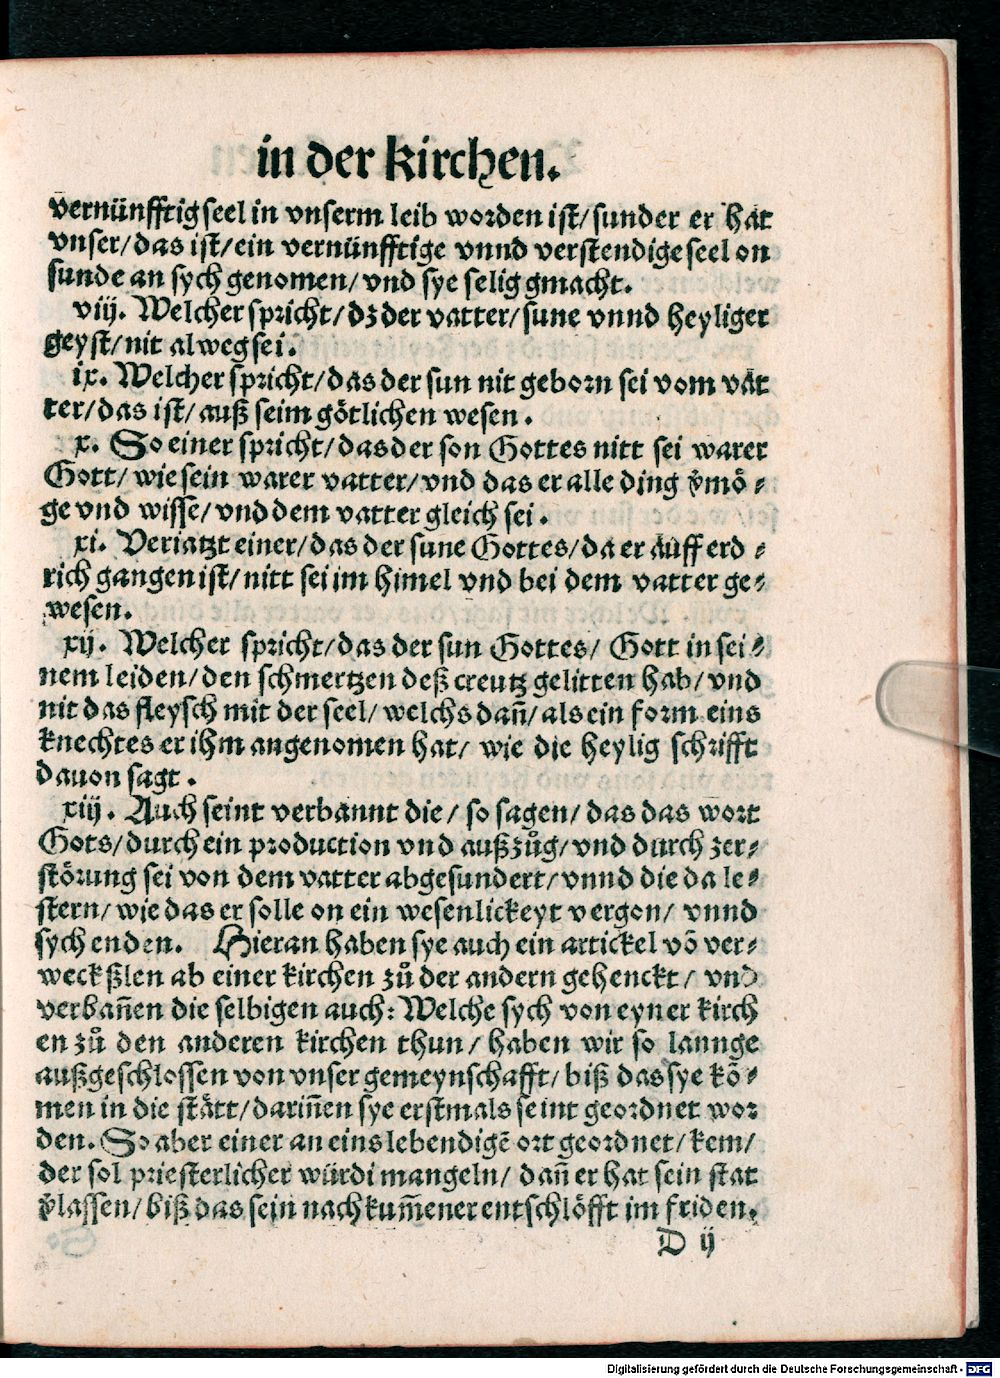 in der kirchen.
vernünfftig seel in vnserm leib worden ist/ sunder er hat
vnser/ das ist/ ein vernünfftige vnnd verstendige seel on
sunde an sych genomen/ vnd sye selig gmacht.
viij. Welcher spricht/ dz der vatter/ sune vnnd heyliger
geyst/ nit alweg sei.
ix. Welcher spricht/ das der sun nit geborn sei vom vät
ter/ das ist/ auß seim götlichen wesen.
x. So einer spricht/ das der son Gottes nitt sei warer
Gott/ wie sein warer vatter/ vnd das er alle ding v̈mö⸗
ge vnd wisse/ vnd dem vatter gleich sei.
xi. Veriatzt einer/ das der sune Gottes/ da er auff erd⸗
rich gangen ist/ nitt sei im himel vnd bei dem vatter ge⸗
wesen.
xij. Welcher spricht/ das der sun Gottes/ Gott in sei⸗
nem leiden/ den schmertzen deß creutz gelitten hab/ vnd
nit das fleysch mit der seel/ welchs dañ/ als ein form eins
knechtes er ihm angenomen hat/ wie die heylig schrifft
dauon sagt.
xiij. Auch seint verbannt die/ so sagen/ das das wort
Gots/ durch ein production vnd außzůg/ vnd durch zer⸗
störung sei von dem vatter abgesundert/ vnnd die da le⸗
stern/ wie das er solle on ein wesenlickeyt vergon/ vnnd
sych enden. Hieran haben sye auch ein artickel võ ver⸗
weckßlen ab einer kirchen zů der andern gehenckt/ vnd
verbañen die selbigen auch: Welche sych von eyner kirch
en zů den anderen kirchen thun/ haben wir so lannge
außgeschlossen von vnser gemeynschafft/ biß das sye kõ⸗
men in die stätt/ dariñen sye erstmals seint geordnet wor
den. So aber einer an eins lebendigẽ ort geordnet/ kem/
der sol priesterlicher würdi mangeln/ dañ er hat sein stat
v̈lassen/ biß das sein nachkum̃ener entschlöfft im friden.
D ij
Digitalisierung gefördert durch die Deutsche Forschungsgemeinschaft - DFG